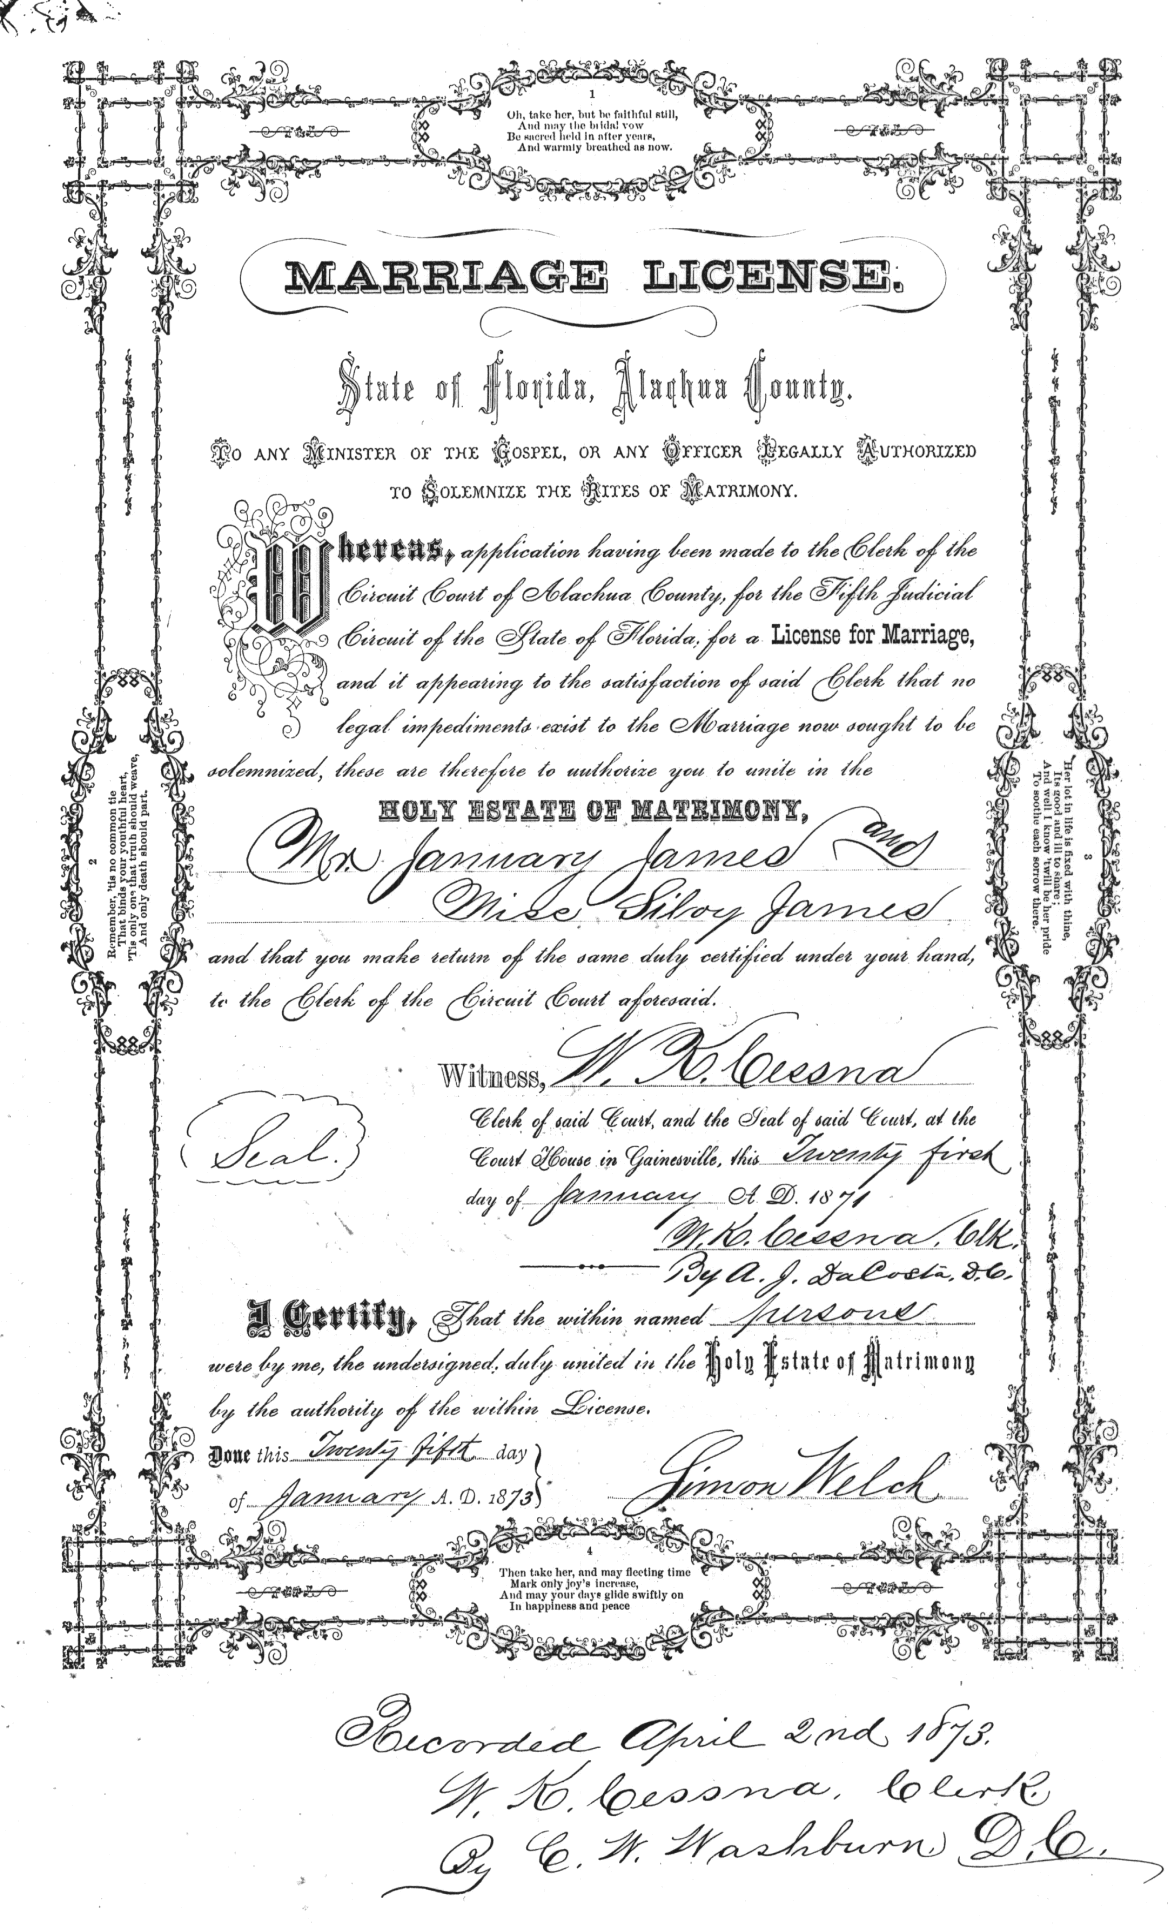 1
Oh, take her, but be faithful still,
And may the bridal vow
Be sacred held in after years,
And warmly breathed as now.
MARRIAGE LICENSE.
State of Florida, Alachua County.
TO ANY MINISTER OF THE GOSPEL, OR ANY OFFICER LEGALLY AUTHORIZED
TO SOLEMNIZE THE RITES OF MATRIMONY.
Whereas, application having been made to the Clerk of the
Circuit Court of Alachua County, for the Fifth Judicial
Circuit of the State of Florida, for a License for Marriage,
and it appearing to the satisfaction of said Clerk that no
legal impediments exist to the Marriage now sought to be
solemnized, these are therefore to authorize you to unite in the
HOLY ESTATE OF MATRIMONY,
Mr. January James and
Miss Silvy James
and that you make return of the same duly certified under your hand,
to the Clerk of the Circuit Court aforesaid.
2
Remember, 'tis no common tie
That binds your youthful heart,
'Tis only one that truth should weave,
And only death should part.
3
Her lot in life is fixed with thine,
Its good and ill to share;
And well I know 'twill be her pride
To soothe each sorrow there.
Witness, W. K. Cessna
Seal.
Clerk of said Court, and the Seal of said Court, at the
Court House in Gainesville, this Twenty first
day of January A. D. 1871
W. K. Cessna, Clk.
By A. J. DaCosta, D.C.
I Certify, That the within named persons
were by me, the undersigned, duly united in the Holy Estate of Matrimony
by the authority of the within License.
Done this Twenty fifth day
of January A. D. 1873
Simon Welch
4
Then take her, and may fleeting time
Mark only joy's increase,
And may your days glide swiftly on
In happiness and peace
Recorded April 2nd 1873.
W. K. Cessna, Clerk.
By C. W. Washburn, D.C.